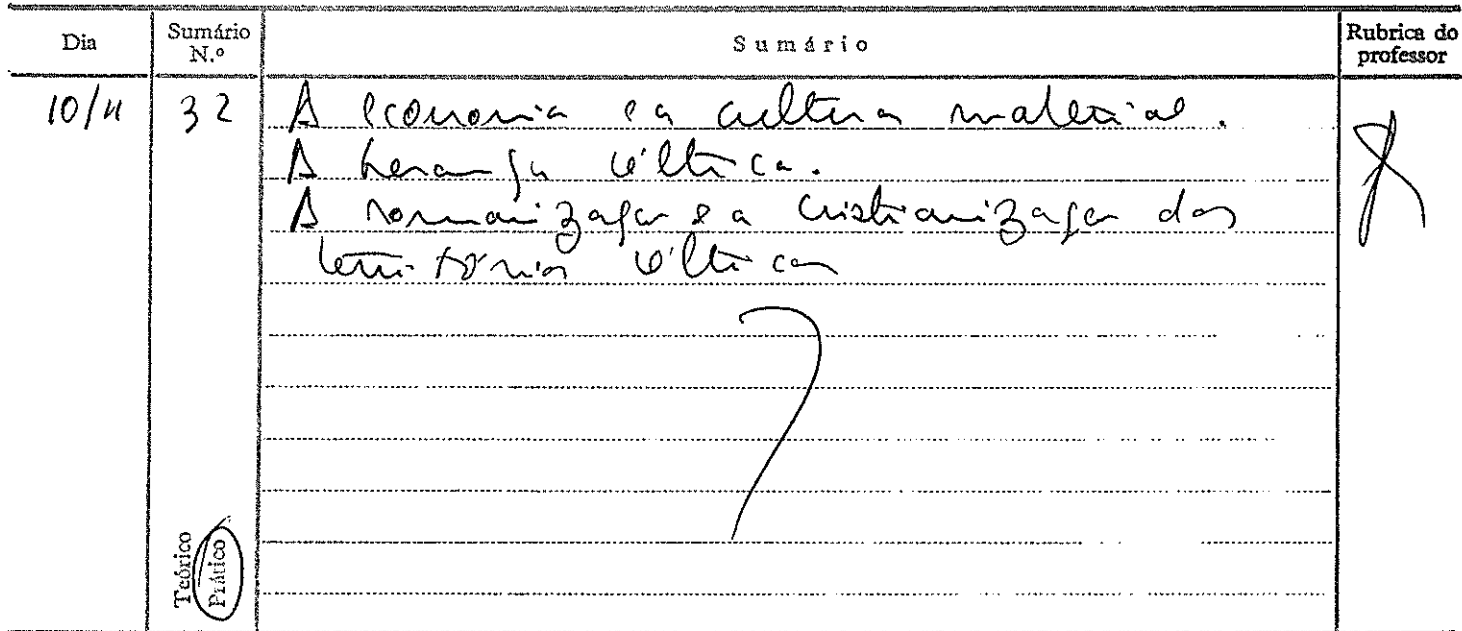 Dia
Sumário N.º
Sumário
Rubrica do professor
10/11
32
A economia e a cultura material.
A herança céltica.
A romanização e a cristianização dos
territórios célticos
Teórico
Prático